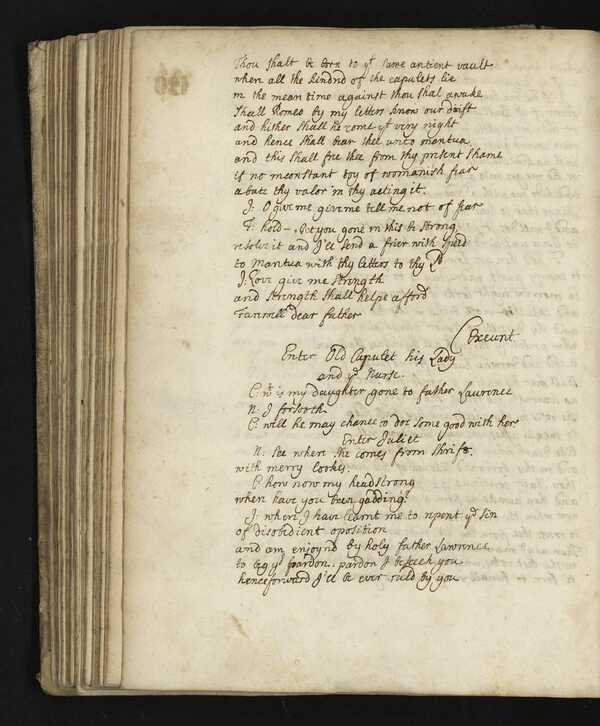 Thou shalt be born to yt same antient vault
where all the kindrid of the capulets lie
in the mean time against thou shal awake
Shall Romeo by my letters know our drift
and hither shall he come yt very night
and hence shall bear thee unto mantua
and this shall free thee from thy present shame
if no inconstant toy of womanish fear
abate thy valor in thy acting it.
J: O give me give me tell me not of fear
F: hold – get you gone in this be strong
resolve it and I'll send a frier with speed
to mantua with thy letters to thy Ld
J: Love give me strength
and strength shall helpe afford
Farewell dear father
Exeunt.
Enter Old Capulet his Lady
and ye Nurse.
C: wt is my daughter gone to father Lawrence
N: I forsooth
C: will he may chance to doe some good with her
Enter Juliet
N: See where she comes from shrift
with merry lookes.
C: how now my headstrong
where have you been gadding?
J: where I have learnt me to repent ye sin
of disobedient oposition
and am enjoynd by holy father Lawrence
to beg yr pardon, pardon I beseech you
henceforward I'll be ever ruld by you
120